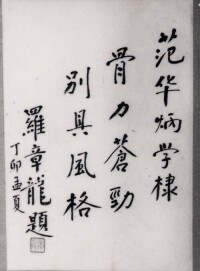 范华炳学棣
骨力蒼勁
别具風格
羅章龍題
丁卯孟夏